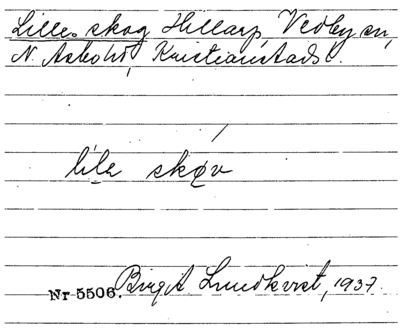 Lille skog Hillarp, Vedby sn,
N. Åsbo hd, Kristianstads l.
lila skøv
Nr 5506. Birgit Lundkvist, 1937.